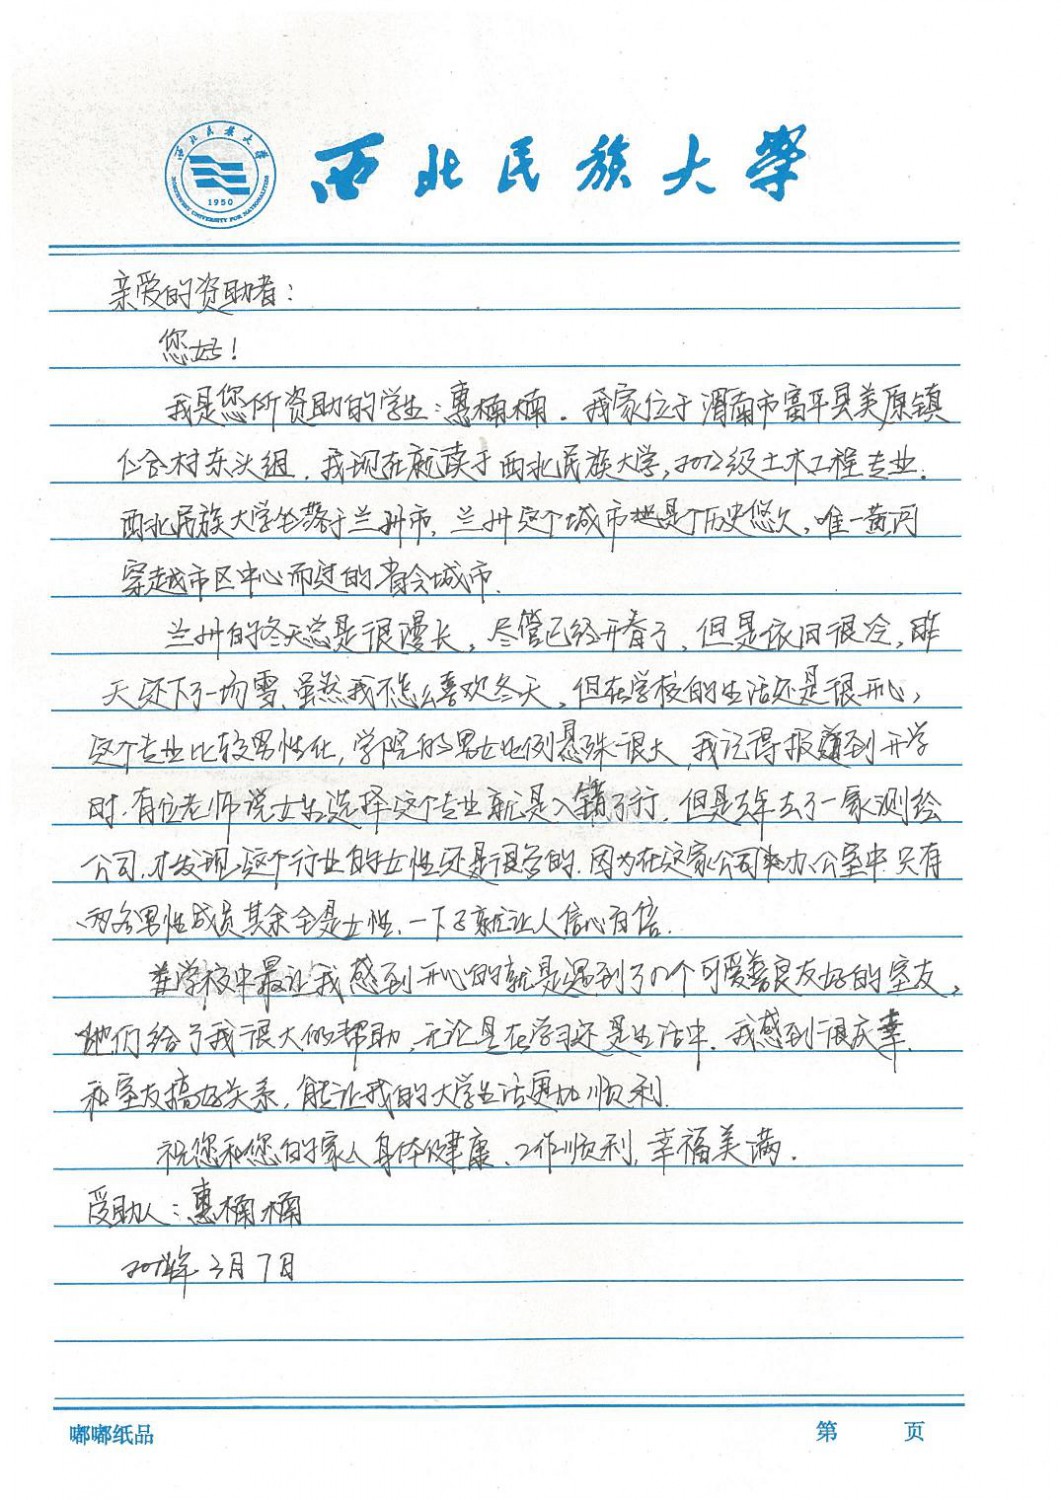 西北民族大学
西北民族大学
NORTHWEST UNIVERSITY FOR NATIONALITIES
1950
亲爱的资助者：
您好！
我是您所资助的学生：惠楠楠．我家位于渭南市富平县美原镇
仁合村东头组．我现在就读于西北民族大学，2012级土木工程专业．
西北民族大学坐落于兰州市，兰州这个城市也是个历史悠久，唯一黄河
穿越市区中心而过的省会城市．
兰州的冬天总是很漫长，尽管已经开春了，但是依旧很冷，昨
天还下了一场雪．虽然我不怎么喜欢冬天，但在学校的生活还是很开心，
这个专业比较男性化，学院的男女比例悬殊很大，我记得报到开学
时．有位老师说女生选择这个专业就是入错了行，但是去年去了一家测绘
公司，才发现，这个行业的女性还是很多的．因为在这家公司办公室中只有
两名男性成员其余全是女性．一下子就让人信心百倍．
在学校中最让我感到开心的就是遇到了几个可爱善良友好的室友，
她们给了我很大的帮助，无论是在学习还是生活中．我感到很庆幸．
和室友搞好关系，能让我的大学生活更加顺利．
祝您和您的家人身体健康、工作顺利，幸福美满．
受助人：惠楠楠
年3月7日
嘟嘟纸品
第 页